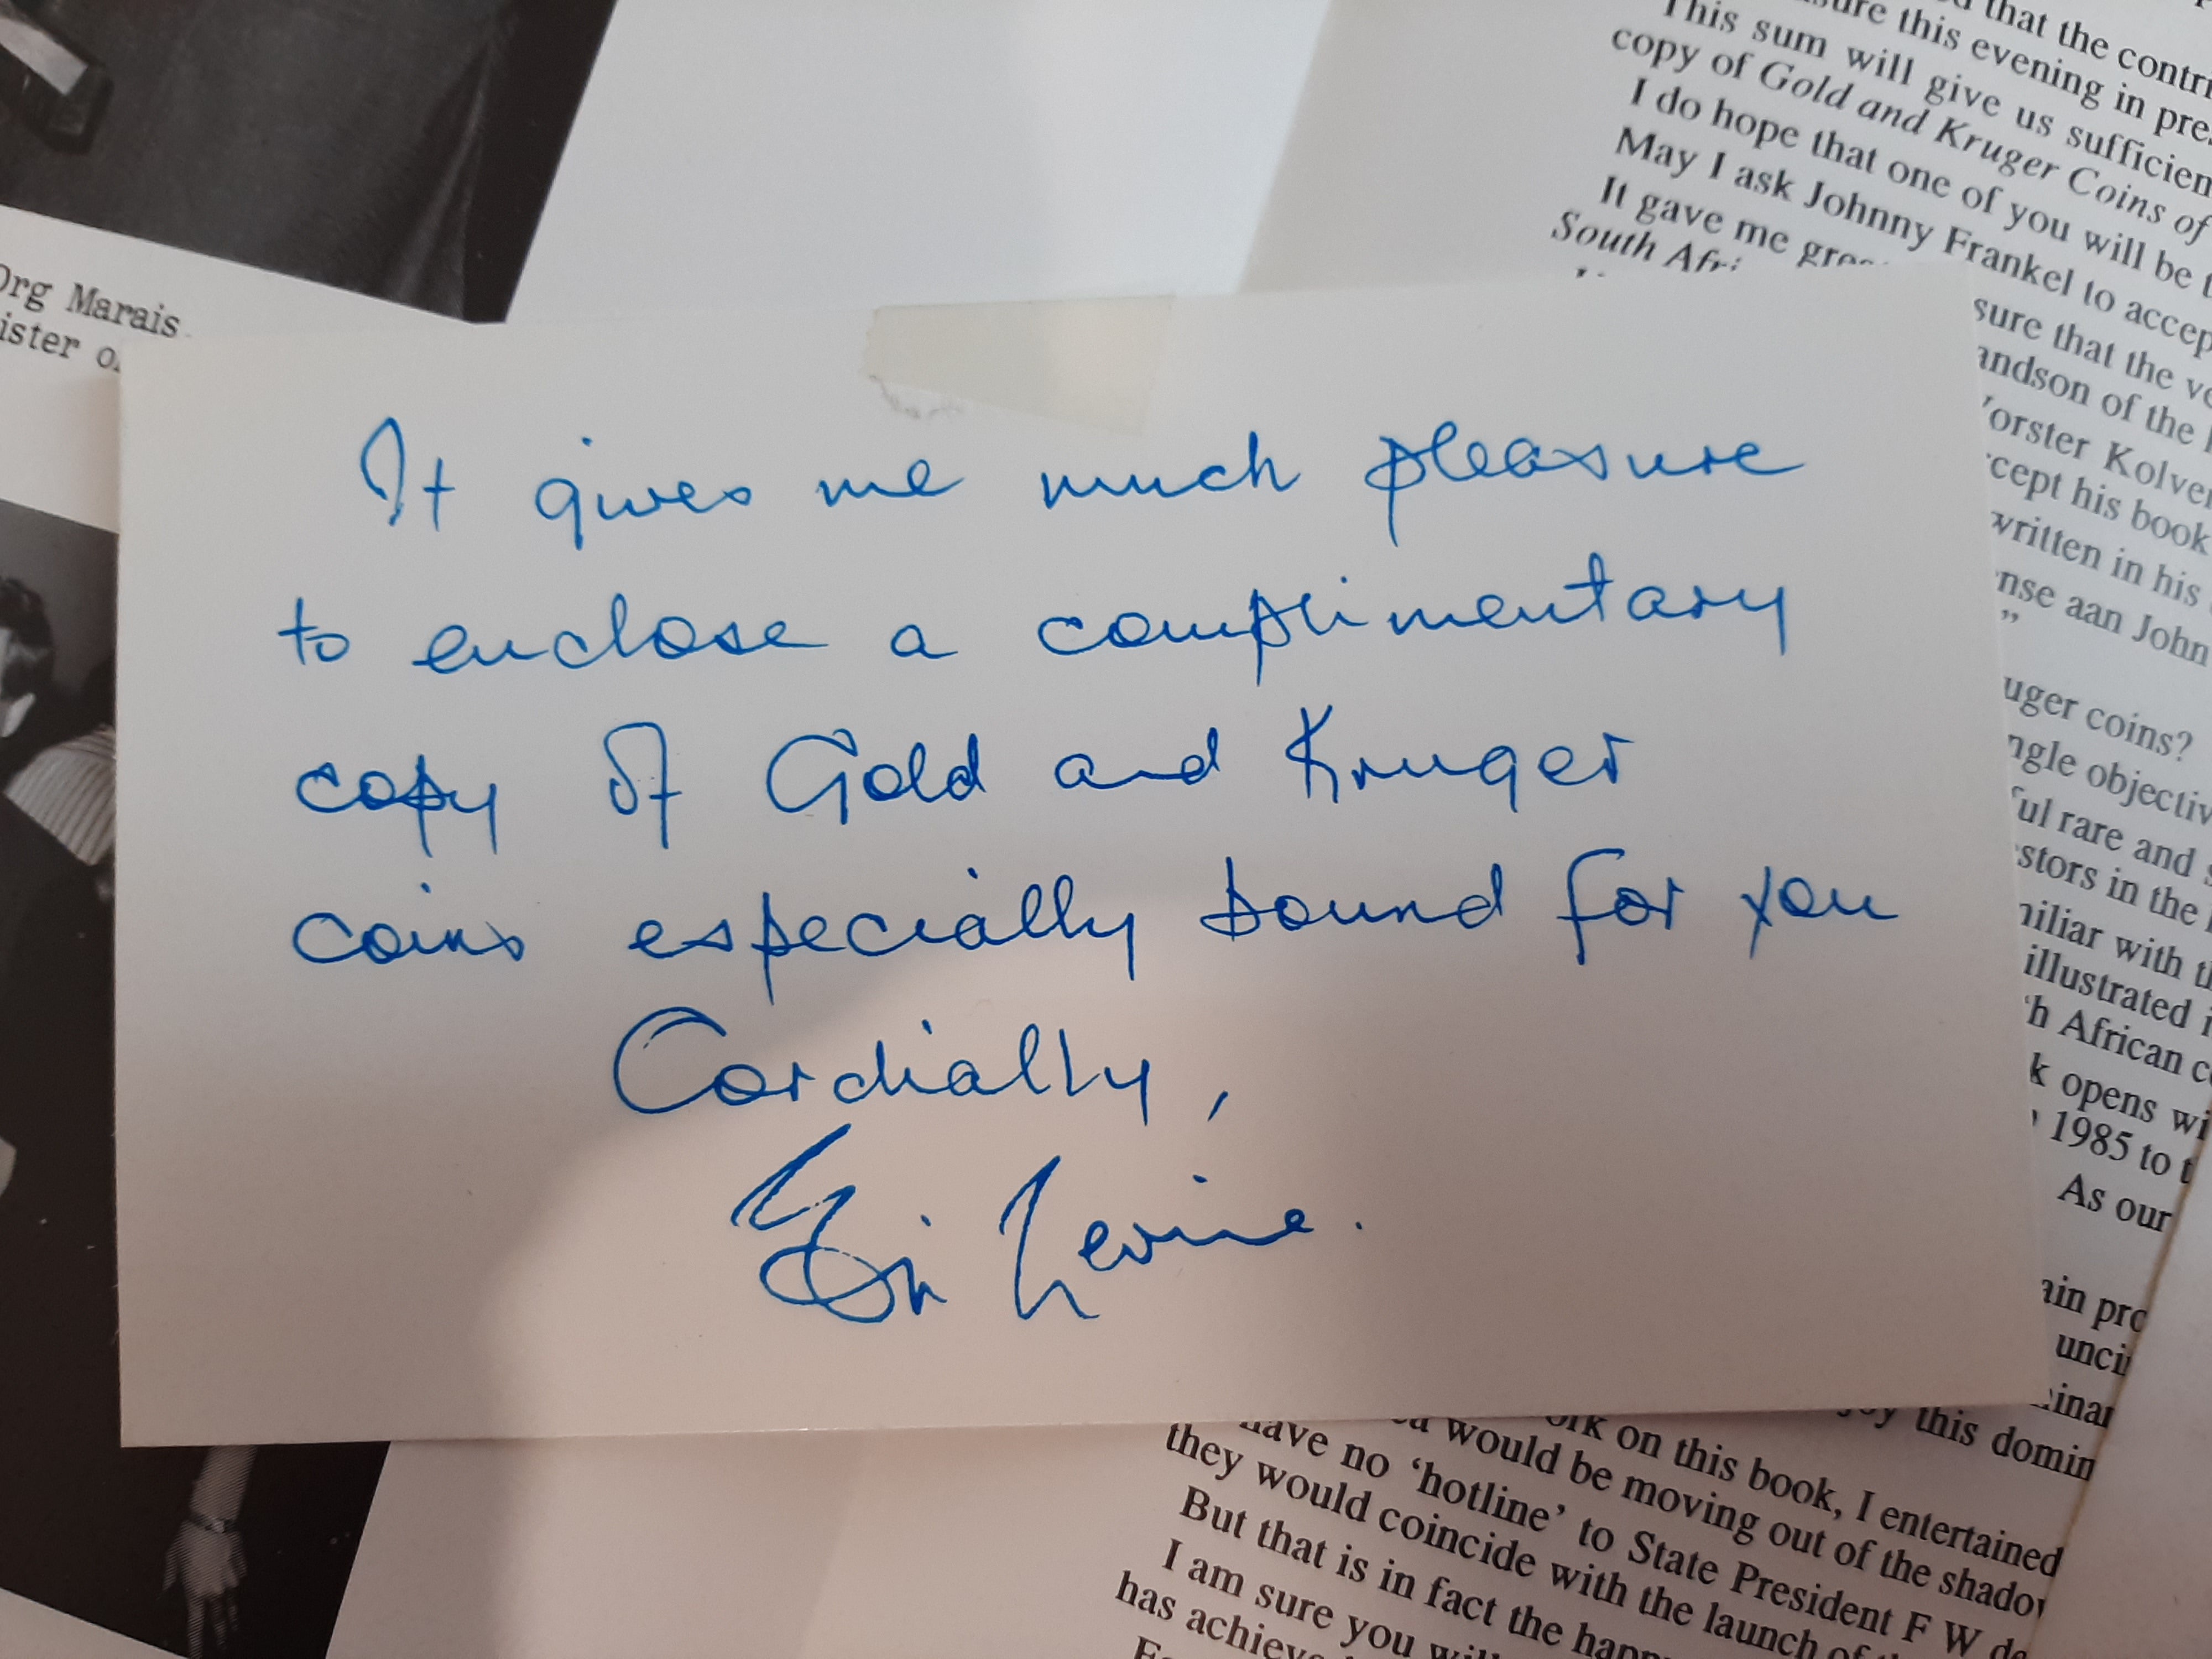 Org Marais
ister o
d that the contri
sure this evening in pres
This sum will give us sufficien
copy of Gold and Kruger Coins of
I do hope that one of you will be t
May I ask Johnny Frankel to accep
It gave me grea
South Afri
sure that the ve
andson of the
orster Kolver
cept his book
written in his
nse aan John
”
uger coins?
ngle objectiv
ful rare and s
stors in the
niliar with th
illustrated i
h African co
k opens wi
1985 to t
As our
ain pro
uncir
inar
joy this domin
It gives me much pleasure
to enclose a complimentary
copy of Gold and Kruger
coins especially bound for you
Cordially,
Eli Levine.
ork on this book, I entertained
ea would be moving out of the shadow
have no ‘hotline’ to State President F W de
they would coincide with the launch of
But that is in fact the happ
I am sure you will
has achieve